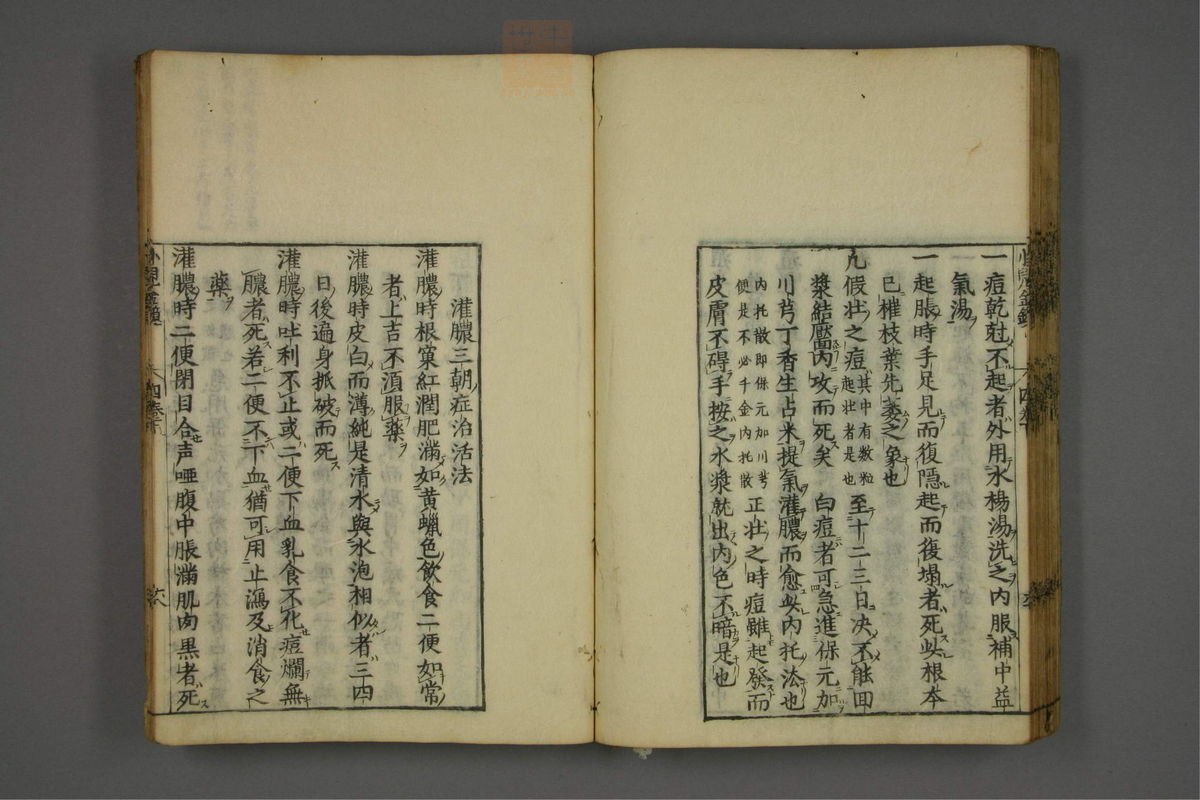 一痘乾尅不起者外用水楊湯洗之内服補中益
氣湯
一起脹時手足見而復隱起而復塌者死此根本
已摧枝葉先萎之象也
凡假壯之痘其中有数粒起壯者是也至十二三日决不能回
漿結靨内攻而死矣白痘者可急進保元加
川芎丁香生占米提氣灌膿而愈此内托法也
内托散即保元加川芎便是不必千金内托散正壯之時痘雖起發而
皮膚不碍手按之水漿就出内色不暗是也
灌膿三朝症治活法
灌膿時根窠紅潤肥滿如黄蠟色飲食二便如常
者上吉不須服薬
灌膿時皮白而薄純是清水與水泡相似者三四
日後遍身抓破而死
灌膿時吐利不止或二便下血乳食不化痘爛無
膿者死若二便不下血猶可用止瀉及消食之
薬
灌膿時二便閉目合声啞腹中脹滿肌肉黒者死